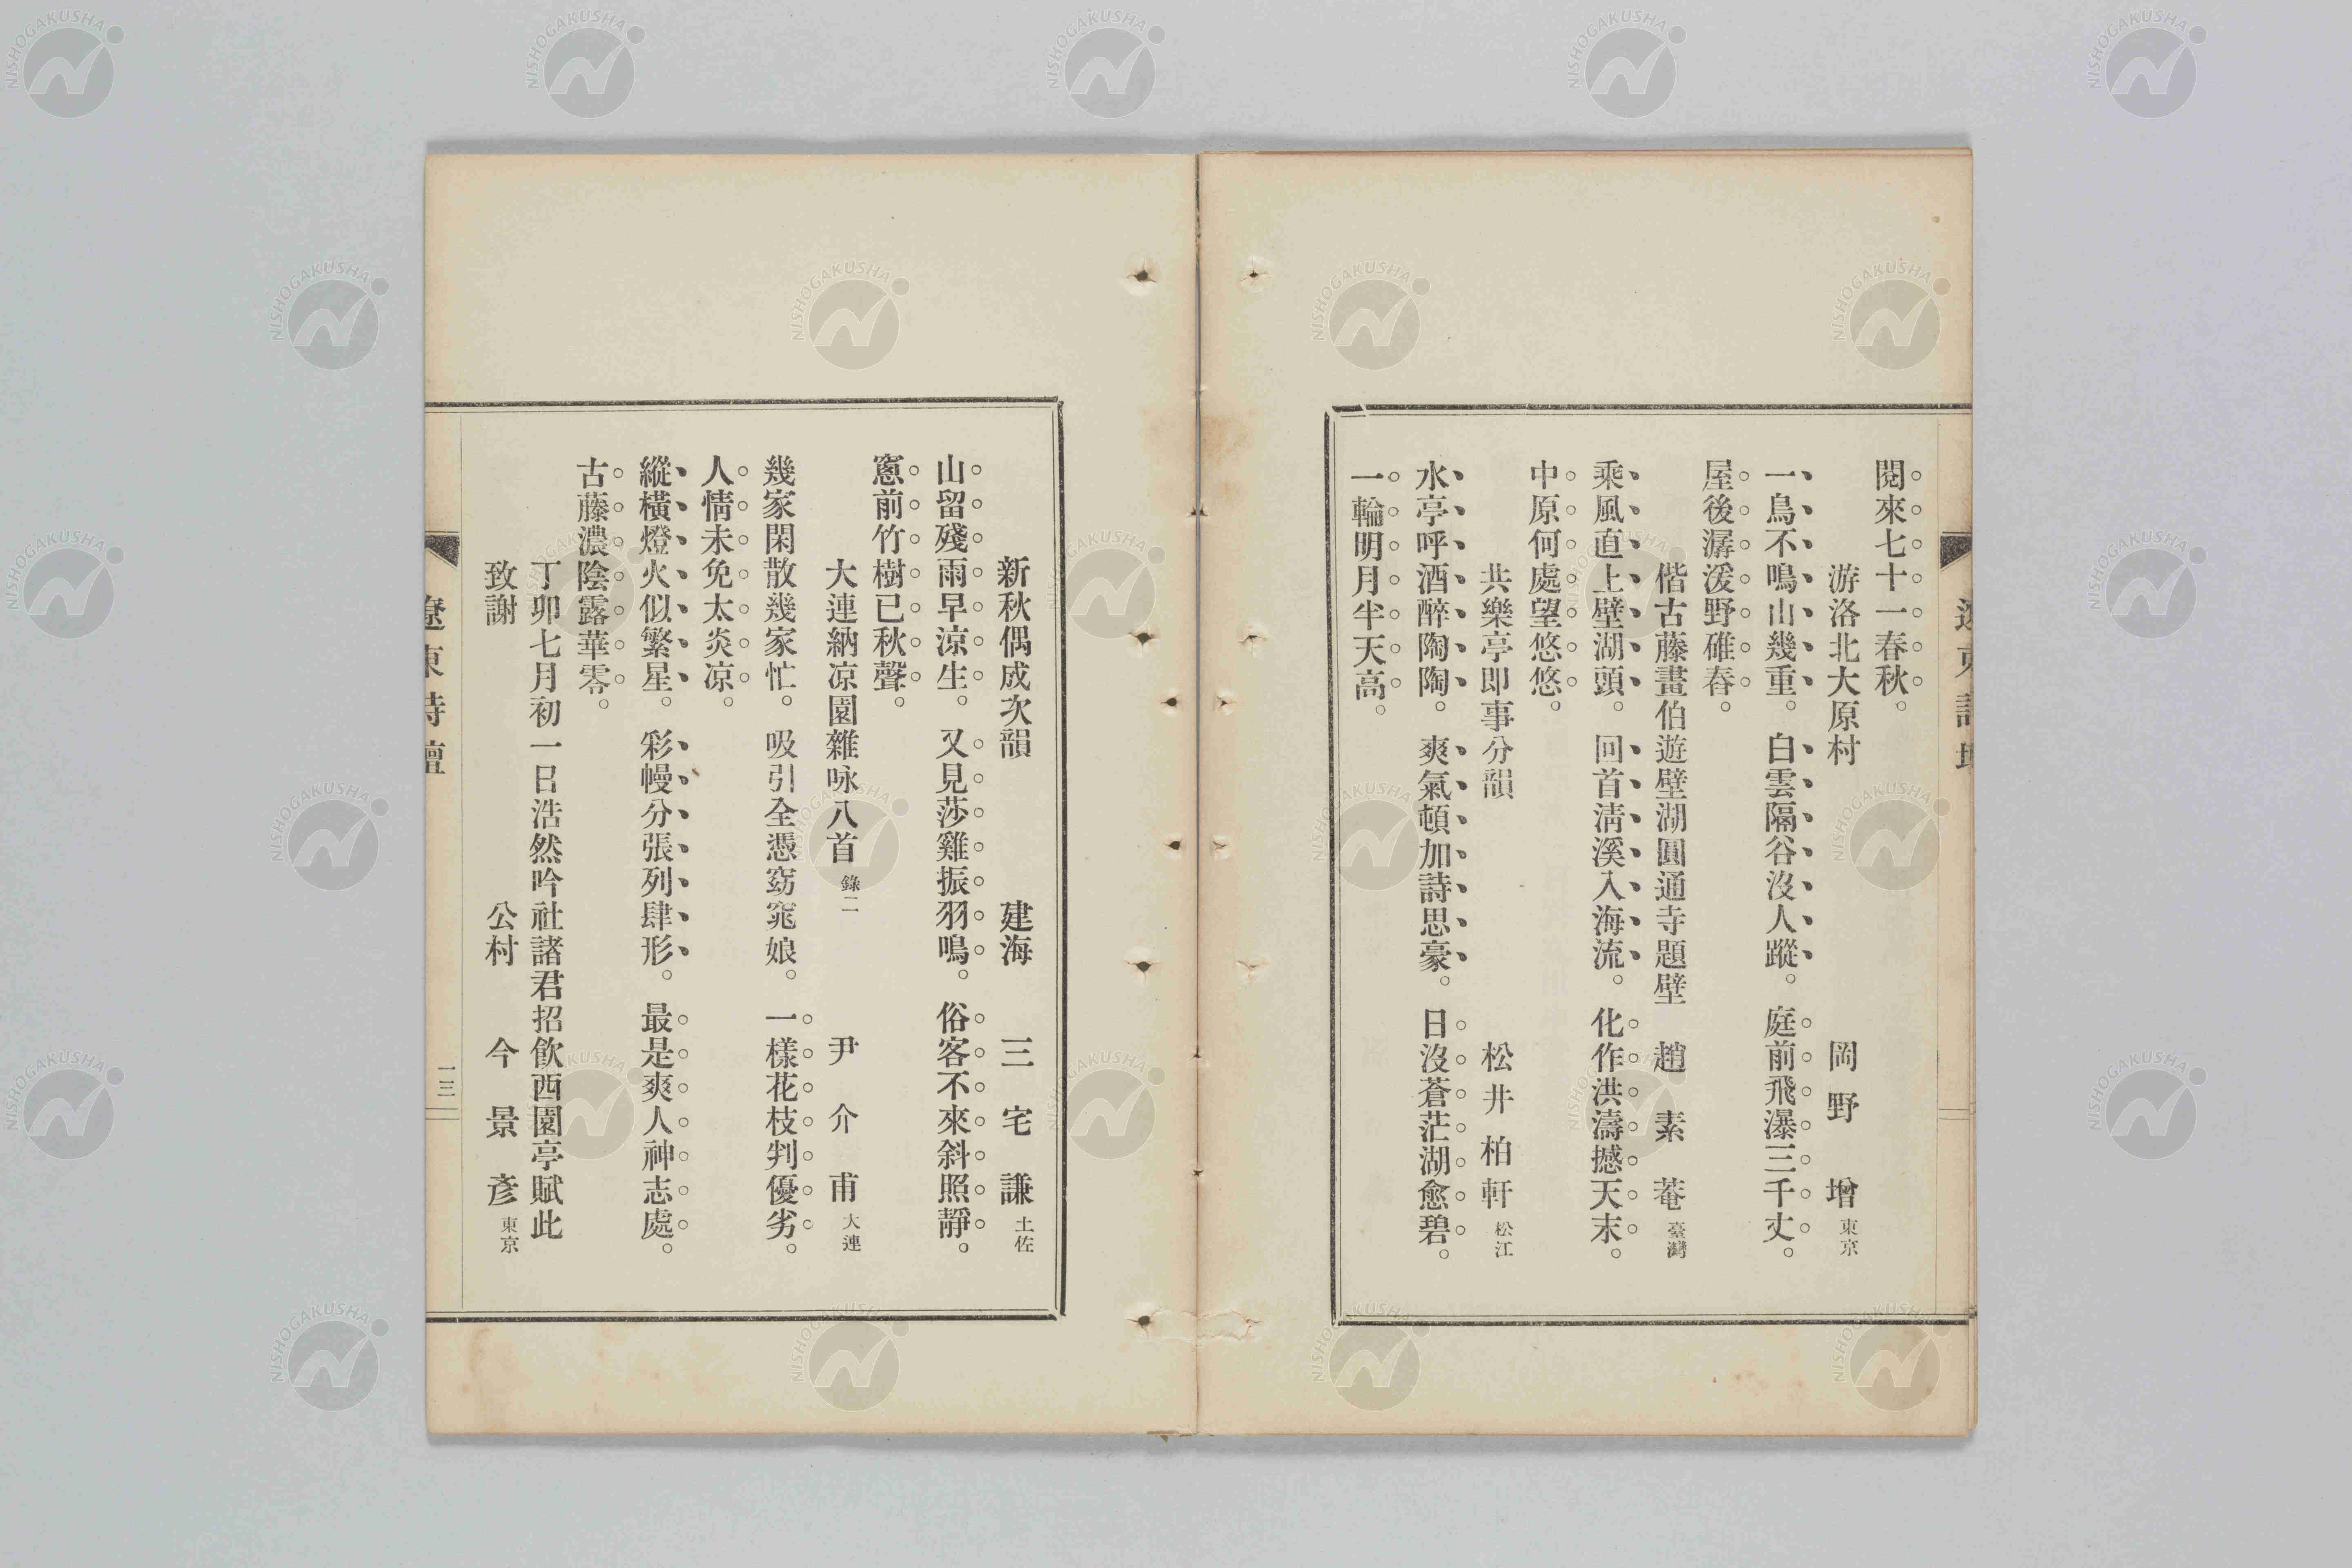 閱來七十一春秋。
游洛北大原村　岡野　增 東京
一鳥不鳴山幾重。白雲隔谷沒人蹤。庭前飛瀑三千丈。
屋後潺湲野碓舂。
偕古藤畫伯遊壁湖圓通寺題壁　趙素菴 臺灣
乘風直上壁湖頭。回首淸溪入海流。化作洪濤撼天末。
中原何處望悠悠。
共樂亭即事分韻　松井柏軒 松江
水亭呼酒醉陶陶。爽氣頓加詩思豪。日沒蒼茫湖愈碧。
一輪明月半天高。
新秋偶成次韻　建海　三宅謙 土佐
山留殘雨早涼生。又見莎雞振羽鳴。俗客不來斜照靜。
窻前竹樹已秋聲。
大連納凉園雜咏八首 錄二　尹介甫 大連
幾家閑散幾家忙。吸引全憑窈窕娘。一樣花枝判優劣。
人情未免太炎凉。
縱橫燈火似繁星。彩幔分張列肆形。最是爽人神志處。
古藤濃陰露華零。
丁卯七月初一日浩然吟社諸君招飮西園亭賦此
致謝　公村　今景彥 東京
遼東詩壇
一三
NISHOGAKUSHA